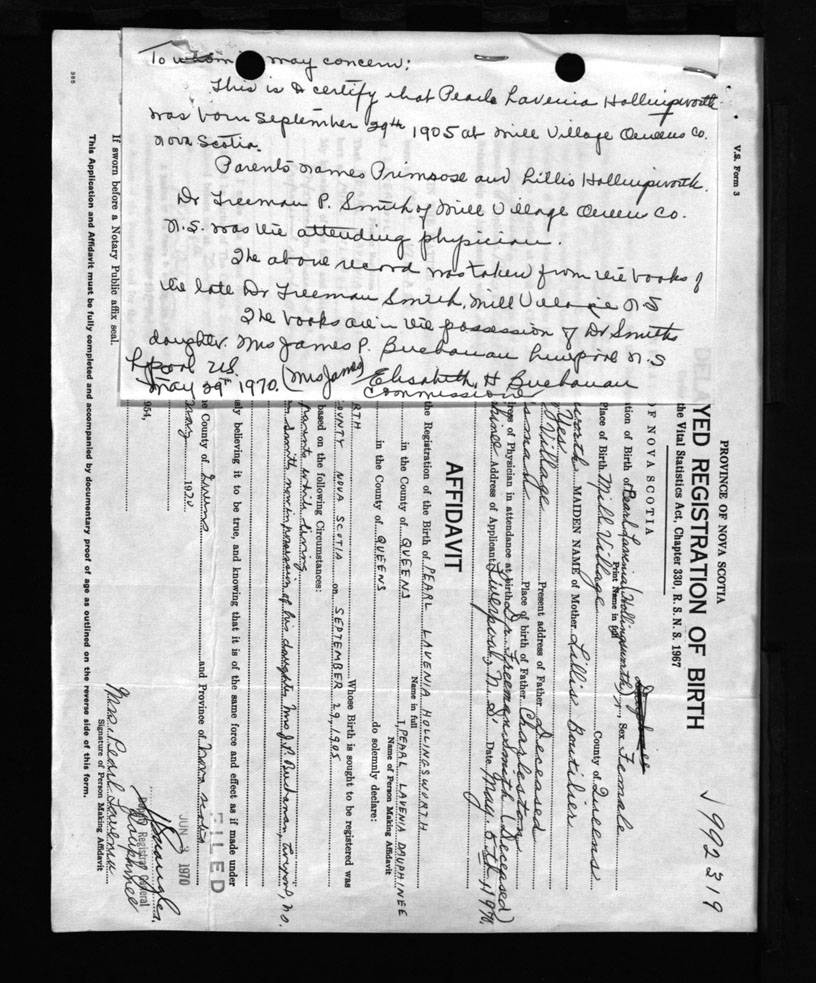 To whom may concern:
This is to certify that Pearle Lavenia Hollingsworth
was born September 29th 1905 at Mill Village Queens Co.
Nova Scotia.
Parents names Primrose and Lillis Hollingsworth.
Dr Freeman P. Smith of Mill Village Queens Co.
N.S. was the attending physician.
The above record was taken from the books of
the late Dr Freeman Smith, Mill Village N S
The books are in the possession of Dr Smiths
daughter. Mrs James P. Buchanan Liverpool N.S
L'pool N.S.
May 29th 1970. (Mrs James) Elizabeth H Buchanan
Commissioner
V.S. Form 3
PROVINCE OF NOVA SCOTIA
YED REGISTRATION OF BIRTH
the Vital Statistics Act, Chapter 330, R.S.N.S. 1967
OF NOVA SCOTIA
1992319
Print Name in full
tion of Birth of Pearl Lavenia (Hollingsworth) Sex Female
Place of Birth Mill Village County of Queens
worth MAIDEN NAME of Mother Lillis Boutilier
Yes
Village Present address of Father Deceased
Place of birth of Father Charleston
ress of Physician in attendance at birth Dr. Freeman Smith (Deceased)
Address of Applicant Liverpool, N. S. Date May 5th 1970
AFFIDAVIT
the Registration of the Birth of PEARL LAVENIA HOLLINGSWORTH
Name in full
in the County of QUEENS I, PEARL LAVENIA DAUPHINEE
Name of Person Making Affidavit
in the County of QUEENS do solemnly declare:
RTH Whose Birth is sought to be registered was
COUNTY NOVA SCOTIA on SEPTEMBER 29, 1905
based on the following Circumstances:
parents while living
Smith now in possession of his daughter Mrs J. P. Buchanan, Liverpool, N.S.
ly believing it to be true, and knowing that it is of the same force and effect as if made under
FILED
he County of Queens and Province of Nova Scotia
May 1970
JUN 1970
Deputy Registrar General
1954,
Mrs. Pearl Lavenia Dauphinee
Signature of Person Making Affidavit
If sworn before a Notary Public affix seal.
This Application and Affidavit must be fully completed and accompanied by documentary proof of age as outlined on the reverse side of this form.